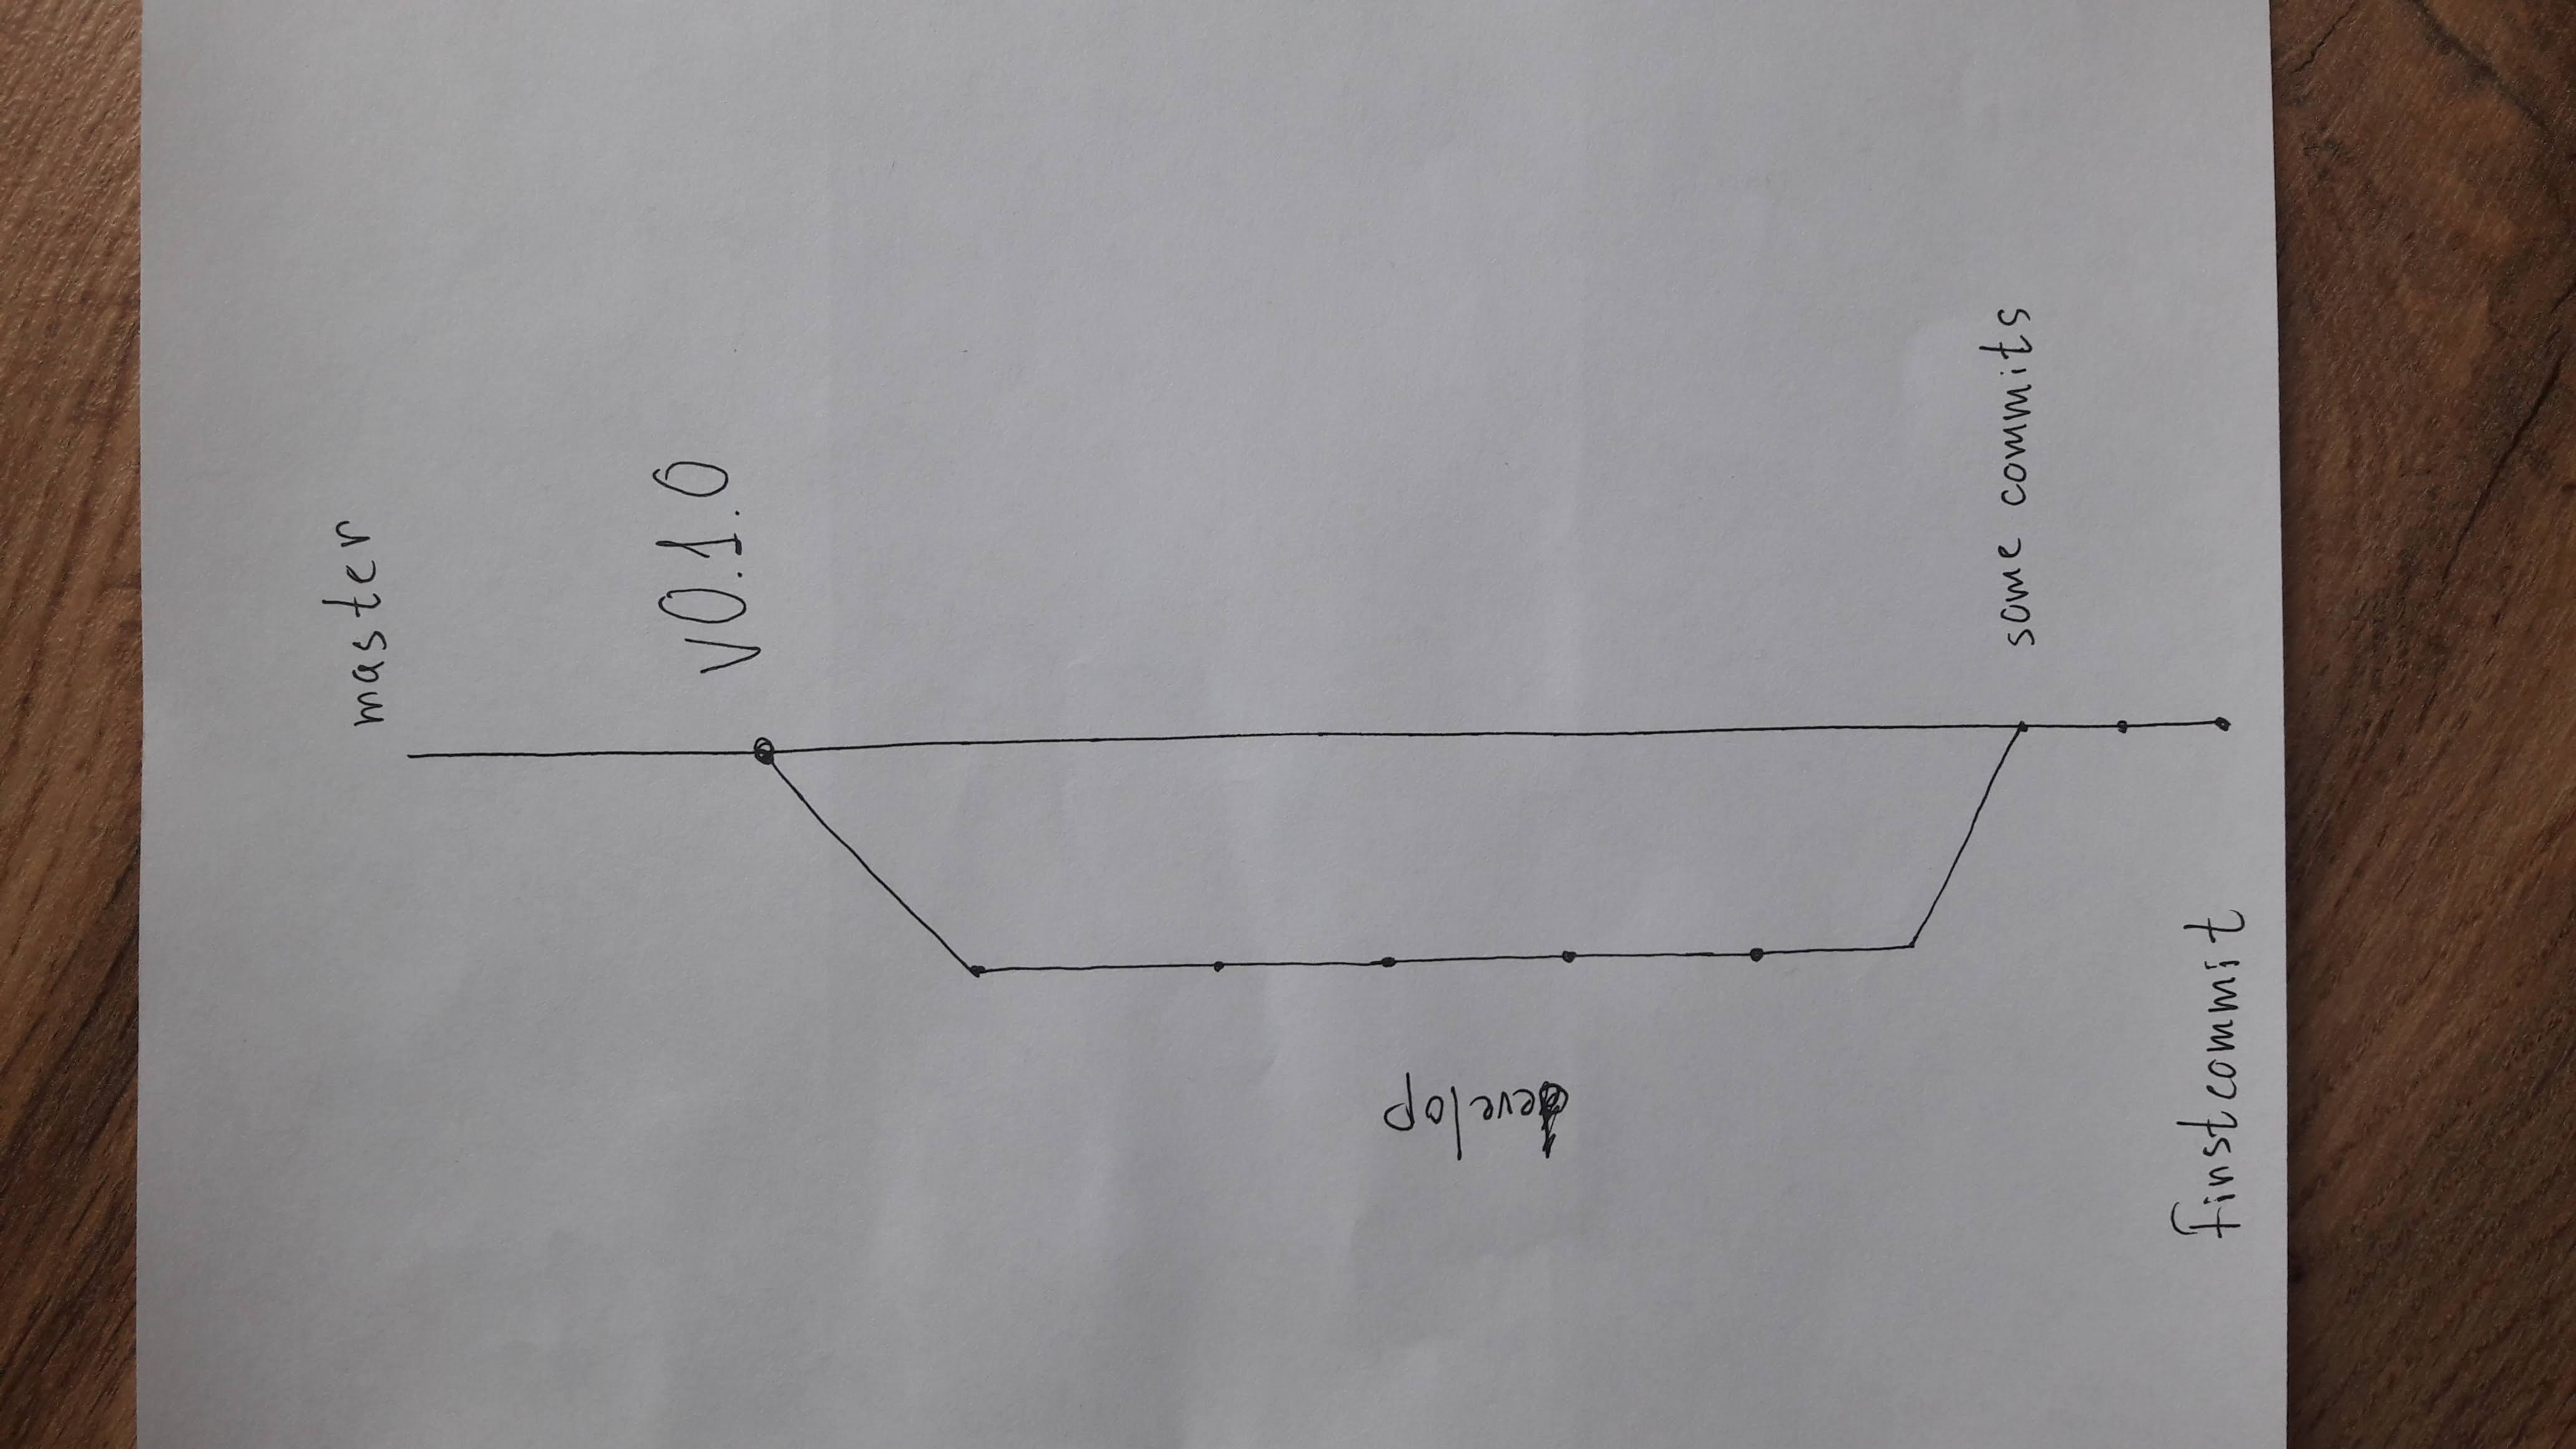 master
v0.1.0
develop
some commits
First commit